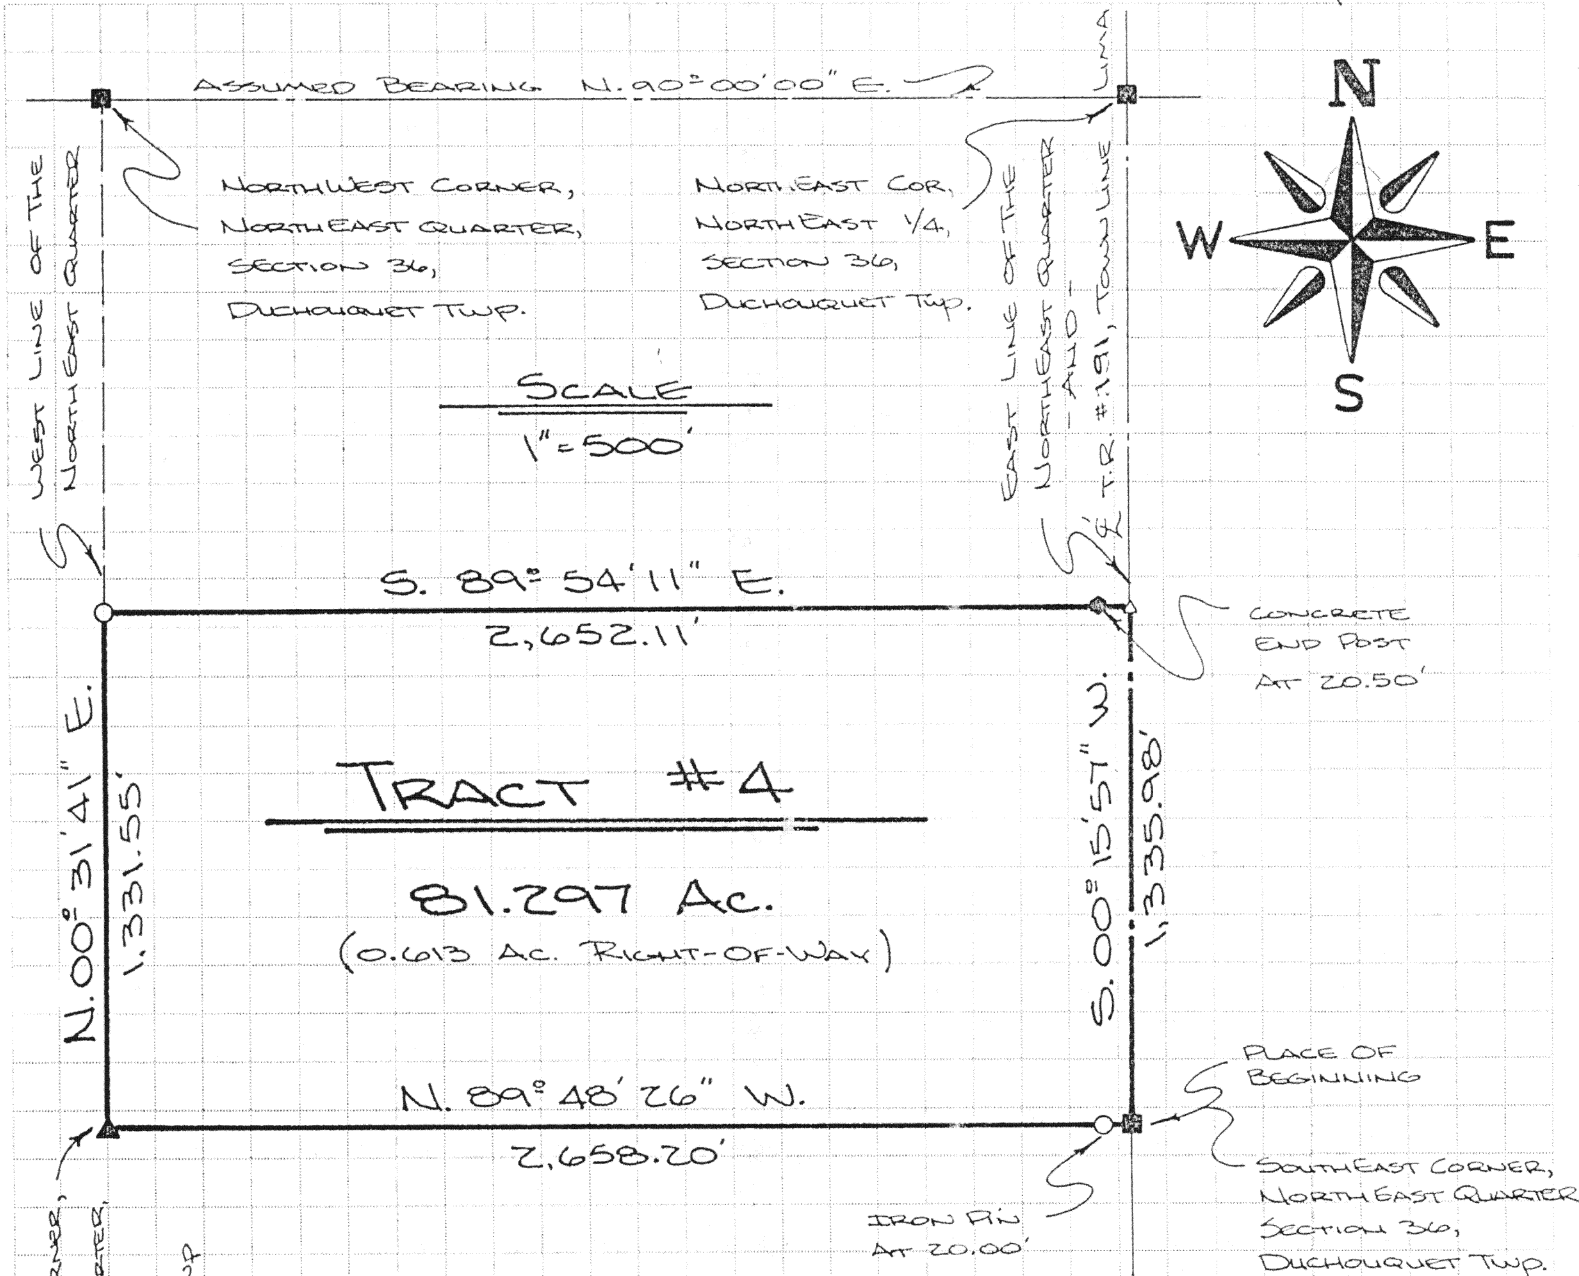 ASSUMED BEARING N. 90°00'00" E.
LIMA
N
W
E
S
NORTHWEST CORNER,
NORTHEAST QUARTER,
SECTION 36,
DUCHOUQUET TWP.
NORTHEAST COR,
NORTHEAST 1/4,
SECTION 36,
DUCHOUQUET TWP.
WEST LINE OF THE
NORTHEAST QUARTER
EAST LINE OF THE
NORTHEAST QUARTER
- AND -
℄ T.R. #191, TOWN LINE
SCALE
1"=500'
S. 89° 54' 11" E.
2,652.11'
CONCRETE
END POST
AT 20.50'
N. 00° 31' 41" E.
1,331.55'
TRACT #4
81.297 AC.
(0.613 AC. RIGHT-OF-WAY)
S. 00° 15' 57" W.
1,335.98'
N. 89° 48' 26" W.
2,658.20'
PLACE OF
BEGINNING
SOUTHEAST CORNER,
NORTHEAST QUARTER
SECTION 36,
DUCHOUQUET TWP.
IRON PIN
AT 20.00'